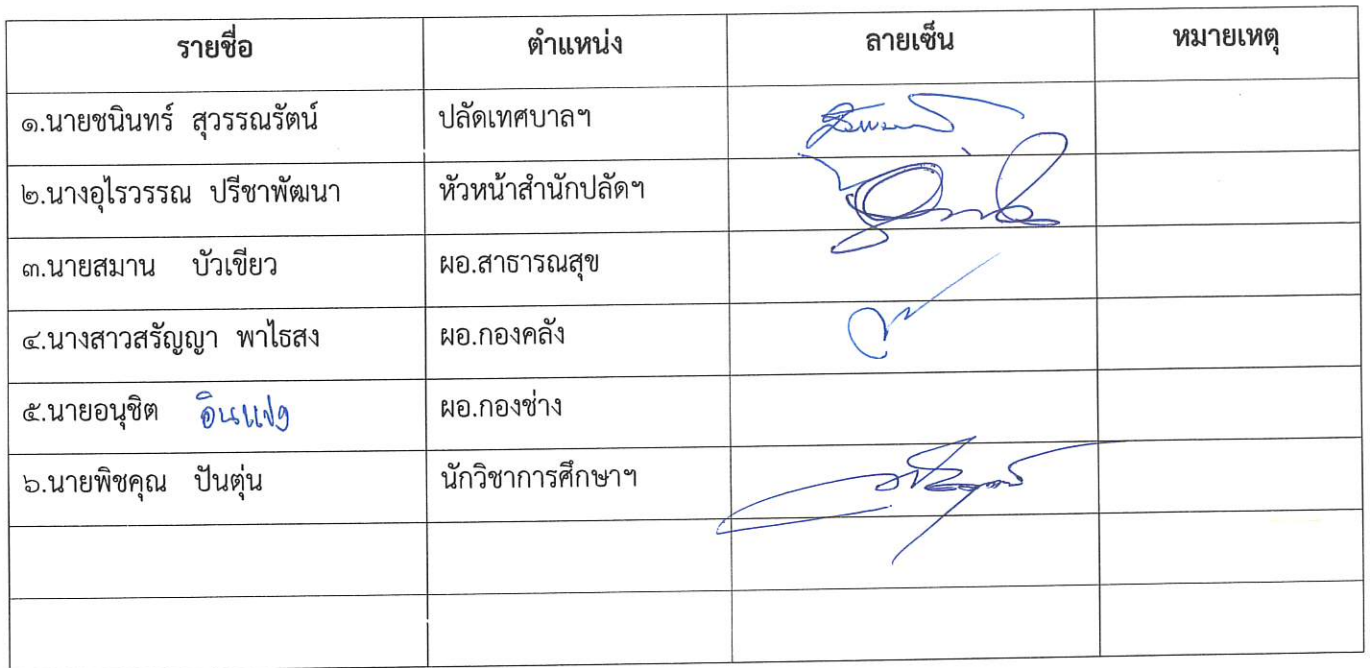 รายชื่อ ตำแหน่ง ลายเซ็น หมายเหตุ
๑.นายชนินทร์ สุวรรณรัตน์ ปลัดเทศบาลฯ
๒.นางอุไรวรรณ ปรีชาพัฒนา หัวหน้าสำนักปลัดฯ
๓.นายสมาน บัวเขียว ผอ.สาธารณสุข
๔.นางสาวสรัญญา พาไธสง ผอ.กองคลัง
๕.นายอนุชิต อินแปง ผอ.กองช่าง
๖.นายพิชคุณ ปันตุ่น นักวิชาการศึกษาฯ